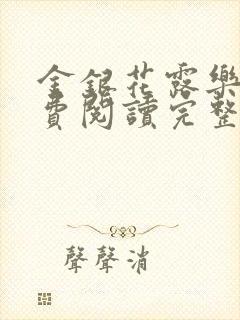 金銀花露樂
費閱讀完整
聲聲消